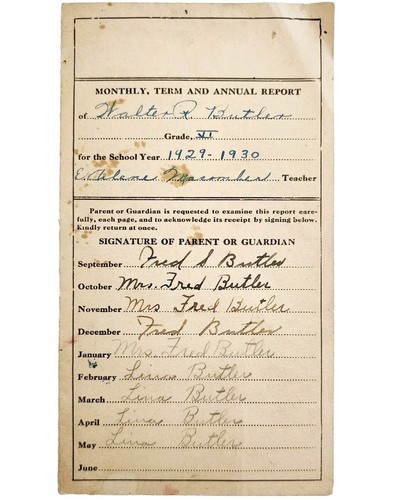 MONTHLY, TERM AND ANNUAL REPORT
of Walter R Butler
Grade, VI
for the School Year 1929-1930
E. Alene Macomber Teacher
Parent or Guardian is requested to examine this report care-
fully, each page, and to acknowledge its receipt by signing below.
Kindly return at once.
SIGNATURE OF PARENT OR GUARDIAN
September Fred S Butler
October Mrs. Fred Butler
November Mrs Fred Butler
December Fred Butler
January Mrs Fred Butler
February Lina Butler
March Lina Butler
April Lina Butler
May Lina Butler
June